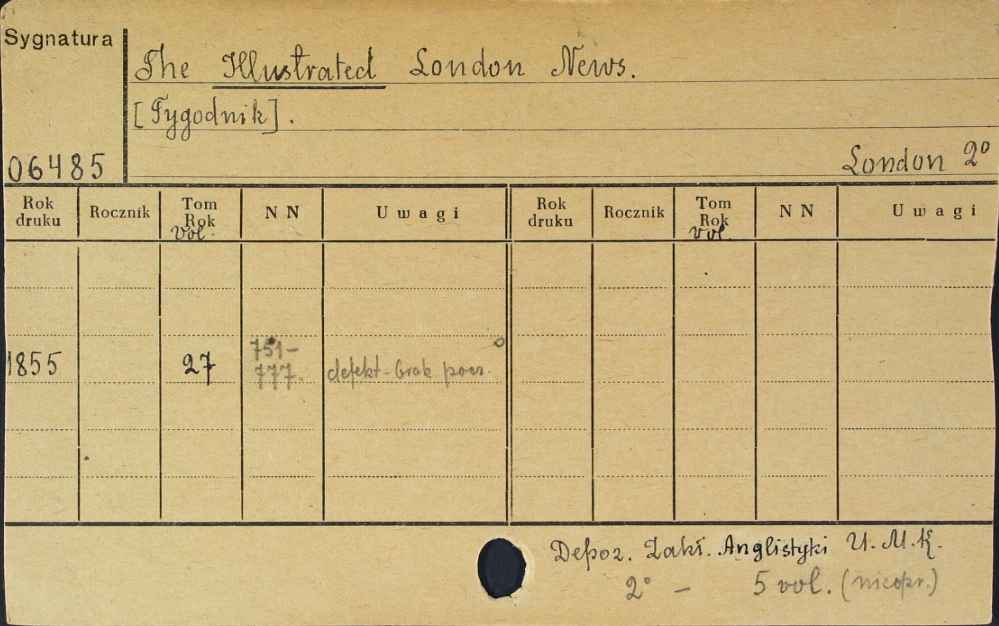 Sygnatura
The Illustrated London News.
[Tygodnik].
06485
London 2°
Rok druku Rocznik Tom Rok vol. NN Uwagi Rok druku Rocznik Tom Rok vol. NN Uwagi
1855 27 751-777. defekt-brak pocz.
Depoz. Zakł. Anglistyki U.M.K.
2° - 5 vol. (nieopr.)